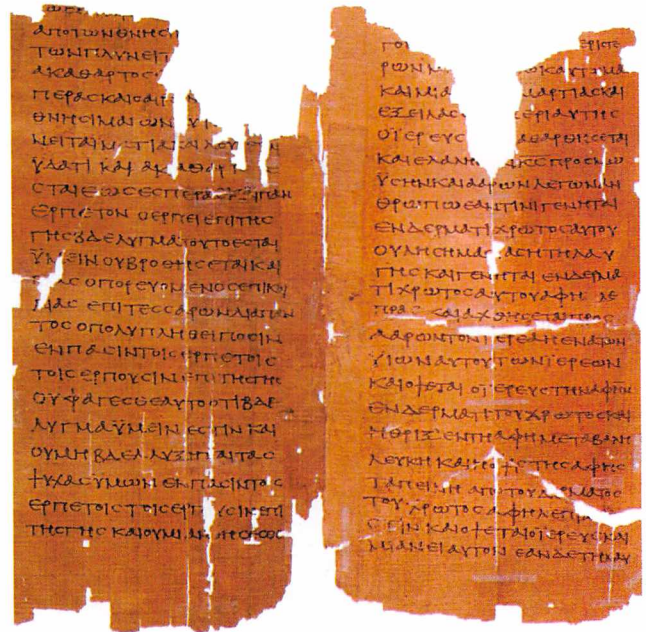 ΑΠΟΤΩΝΘΝΗϹΙ
ΤΩΝΠΛΥΝΕΙΤ
ΑΚΑΘΑΡΤΟϹ
ΠΕΡΑϹΚΑΙΟΑΙΡ
ΘΝΗϹΙΜΑΙΩΝ
ΝΕΙΤΑΙΜΑΤΙΑΚΑΙΛΟΥ
ΫΔΑΤΙΚΑΙΑΚΑΘΑΡ
ϹΤΑΙΕΩϹΕϹΠΕΡΑϹΚΑΙΠΑΝ
ΕΡΠΕΤΟΝΟΕΡΠΕΙΕΠΙΤΗϹ
ΓΗϹΒΔΕΛΥΓΜΑΤΟΥΤΟΕϹΤΑΙ
ΫΜΕΙΝΟΥΒΡΟΘΗϹΕΤΑΙΚΑΙ
ΑϹΟΠΟΡΕΥΟΜΕΝΟϹΕΠΙΚΟΙ
ΛΙΑϹΕΠΙΤΕϹϹΑΡΩΝΔΙΑΠΑΝ
ΤΟϹΟΠΟΛΥΠΛΗΘΕΙΠΟϹΙΝ
ΕΝΠΑϹΙΝΤΟΙϹΕΡΠΕΤΟΙϹ
ΤΟΙϹΕΡΠΟΥϹΙΝΕΠΙΤΗϹΓΗϹ
ΟΥΦΑΓΕϹΘΕΑΥΤΟΟΤΙΒΔΕ
ΛΥΓΜΑΫΜΕΙΝΕϹΤΙΝΚΑΙ
ΟΥΜΗΒΔΕΛΛΥΞΗΤΑΙΤΑϹ
ΨΥΧΑϹΥΜΩΝΕΝΠΑϹΙΝΤΟΙϹ
ΕΡΠΕΤΟΙϹΤΟΙϹΕΡΠΟΥϹΙΝΕΠΙ
ΤΗϹΓΗϹΚΑΙΟΥΜΙΑΝΘΗϹΕϹΘΕ
ΓΟ ΕΡΙϹΤΕ
ΡΩΝΜ ΩΚΑΥΤΩΜΑ
ΚΑΙΜΙΑ ΜΑΡΤΙΑϹΚΑΙ
ΕΞΕΙΛΑϹ ΕΡΙΑΥΤΗϹ
ΟΪΕΡΕΥϹ ΑΘΑΡΘΗϹΕΤΑΙ
ΚΑΙΕΛΑΛΗ ΚϹΠΡΟϹΜΩ
ΫϹΗΝΚΑΙΑΑΡΩΝΛΕΓΩΝΑΝ
ΘΡΩΠΩΕΑΝΤΙΝΙΓΕΝΗΤΑΙ
ΕΝΔΕΡΜΑΤΙΧΡΩΤΟϹΑΥΤΟΥ
ΟΥΛΗϹΗΜΑϹΙΑϹΗΤΗΛΑΥ
ΓΗϹΚΑΙΓΕΝΗΤΑΙΕΝΔΕΡΜΑ
ΤΙΧΡΩΤΟϹΑΥΤΟΥΑΦΗΛΕ
ΠΡΑϹΚΑΙΑΧΘΗϹΕΤΑΙΠΡΟϹ
ΑΑΡΩΝΤΟΝΪΕΡΕΑΗΕΝΑΤΩΝ
ΫΙΩΝΑΥΤΟΥΤΩΝΪΕΡΕΩΝ
ΚΑΙΟΨΕΤΑΙΟΪΕΡΕΥϹΤΗΝΑΦΗΝ
ΕΝΔΕΡΜΑΤΙΤΟΥΧΡΩΤΟϹΚΑΙ
ΗΘΡΙΞΕΝΤΗΑΦΗΜΕΤΑΒΑΛΗ
ΛΕΥΚΗΚΑΙΗΟΨΙϹΤΗϹΑΦΗϹ
ΤΑΠΕΙΝΗΑΠΟΤΟΥΔΕΡΜΑΤΟϹ
ΤΟΥΧΡΩΤΟϹΑΦΗΛΕΠΡΑ
ΕϹΤΙΝΚΑΙΟΨΕΤΑΙΟΪΕΡΕΥϹΚΑΙ
ΜΙΑΝΕΙΑΥΤΟΝΕΑΝΔΕΤΗΛΑΥ